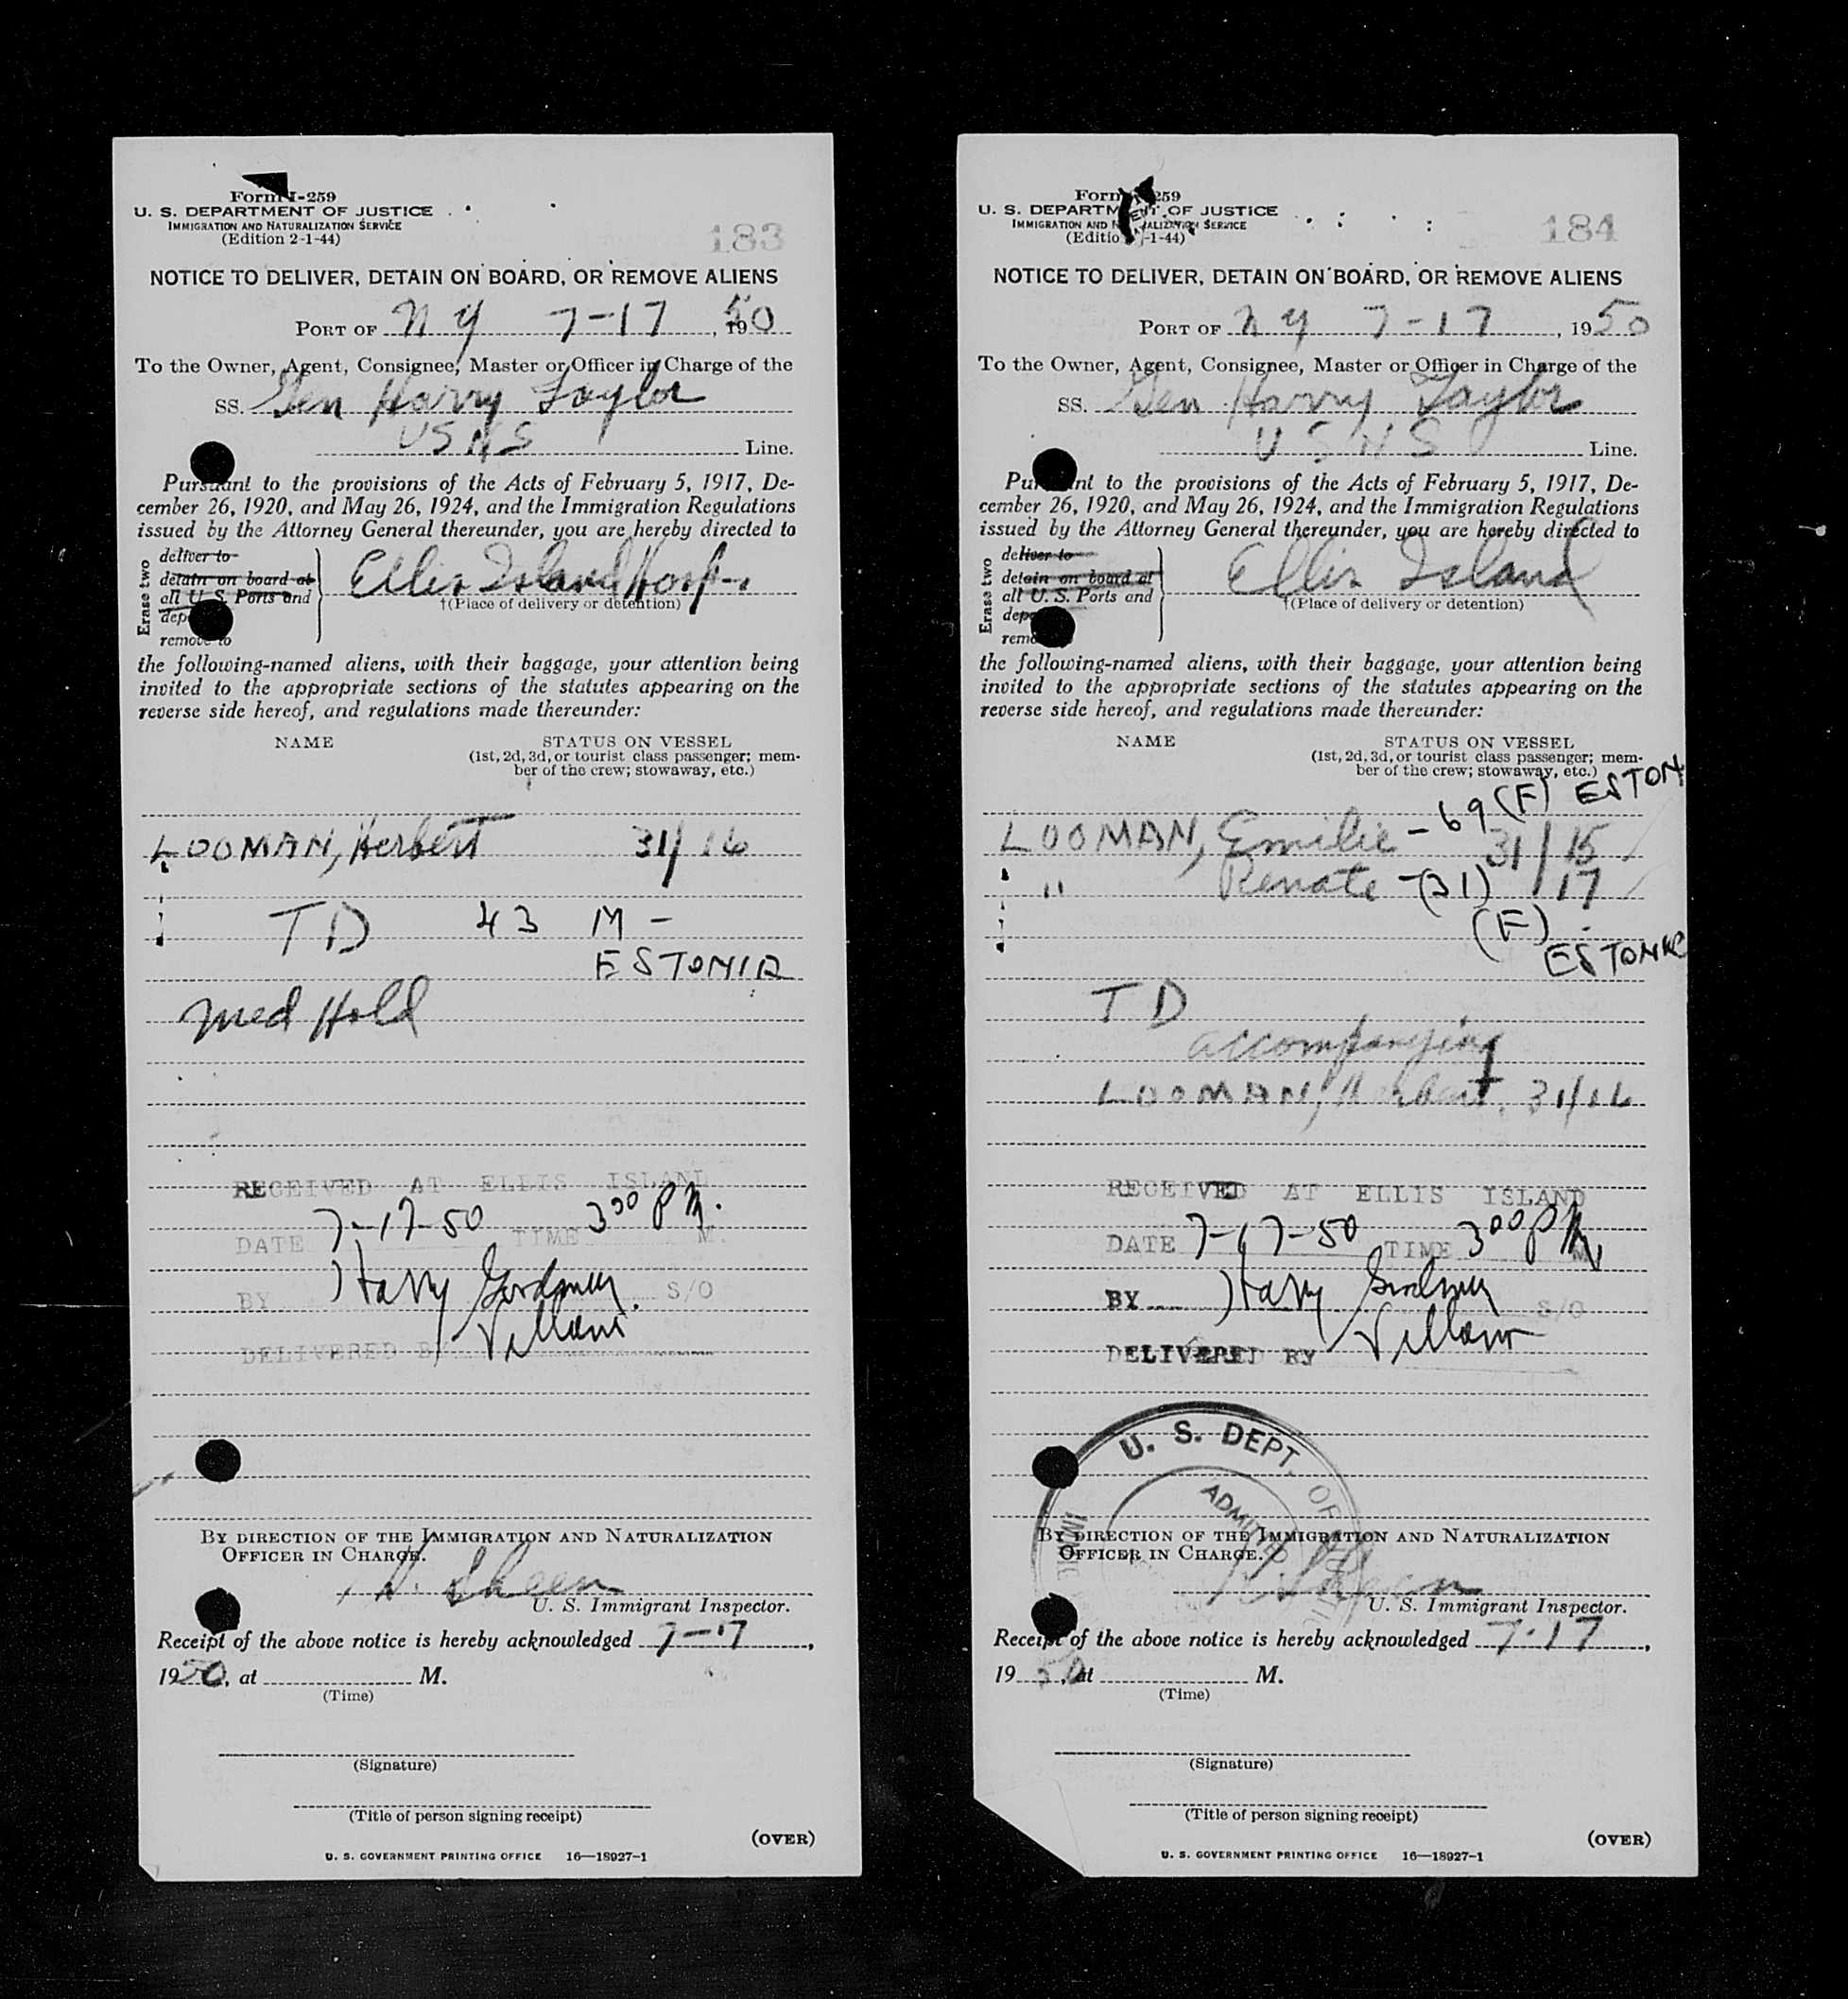 Form I-259
U. S. DEPARTMENT OF JUSTICE
IMMIGRATION AND NATURALIZATION SERVICE
(Edition 2-1-44)
183
NOTICE TO DELIVER, DETAIN ON BOARD, OR REMOVE ALIENS
PORT OF N Y 7-17, 1950
To the Owner, Agent, Consignee, Master or Officer in Charge of the
SS. Gen Harry Taylor
USNS Line.
Pursuant to the provisions of the Acts of February 5, 1917, De-
cember 26, 1920, and May 26, 1924, and the Immigration Regulations
issued by the Attorney General thereunder, you are hereby directed to
Erase two
deliver to
detain on board at
all U. S. Ports and
dep
remove to
Ellis Island Hosp.
†(Place of delivery or detention)
the following-named aliens, with their baggage, your attention being
invited to the appropriate sections of the statutes appearing on the
reverse side hereof, and regulations made thereunder:
NAME STATUS ON VESSEL
(1st, 2d, 3d, or tourist class passenger; mem-
ber of the crew; stowaway, etc.)
LOOMAN, Herbert 31/16
TD 43 M -
ESTONIA
Med Hold
RECEIVED AT ELLIS ISLAND
DATE 7-17-50 TIME 3 00 P M.
BY Harry S/O
DELIVERED BY
BY DIRECTION OF THE IMMIGRATION AND NATURALIZATION
OFFICER IN CHARGE.
Sheen
U. S. Immigrant Inspector.
Receipt of the above notice is hereby acknowledged 7-17,
1950, at M.
(Time)
(Signature)
(Title of person signing receipt)
(OVER)
U. S. GOVERNMENT PRINTING OFFICE 16—18927-1
Form 259
U. S. DEPARTMENT OF JUSTICE
IMMIGRATION AND NATURALIZATION SERVICE
(Edition -1-44)
184
NOTICE TO DELIVER, DETAIN ON BOARD, OR REMOVE ALIENS
PORT OF N Y 7-17, 1950
To the Owner, Agent, Consignee, Master or Officer in Charge of the
SS. Gen Harry Taylor
USNS Line.
Pursuant to the provisions of the Acts of February 5, 1917, De-
cember 26, 1920, and May 26, 1924, and the Immigration Regulations
issued by the Attorney General thereunder, you are hereby directed to
Erase two
deliver to
detain on board at
all U. S. Ports and
dep
remo
Ellis Island
†(Place of delivery or detention)
the following-named aliens, with their baggage, your attention being
invited to the appropriate sections of the statutes appearing on the
reverse side hereof, and regulations made thereunder:
NAME STATUS ON VESSEL
(1st, 2d, 3d, or tourist class passenger; mem-
ber of the crew; stowaway, etc.)
LOOMAN, Emilie - 69 (F) ESTON 31/15
" Renate - 31/17
(F)
TD
accompanying
LOOMAN, Herbert, 31/16
RECEIVED AT ELLIS ISLAND
DATE 7-17-50 TIME 3 00 P M
BY Harry S/O
DELIVERED BY
U. S. DEPT. OF
ADMITTED
BY DIRECTION OF THE IMMIGRATION AND NATURALIZATION
OFFICER IN CHARGE.
Sheen
U. S. Immigrant Inspector.
Receipt of the above notice is hereby acknowledged 7-17,
1950, at M.
(Time)
(Signature)
(Title of person signing receipt)
(OVER)
U. S. GOVERNMENT PRINTING OFFICE 16—18927-1